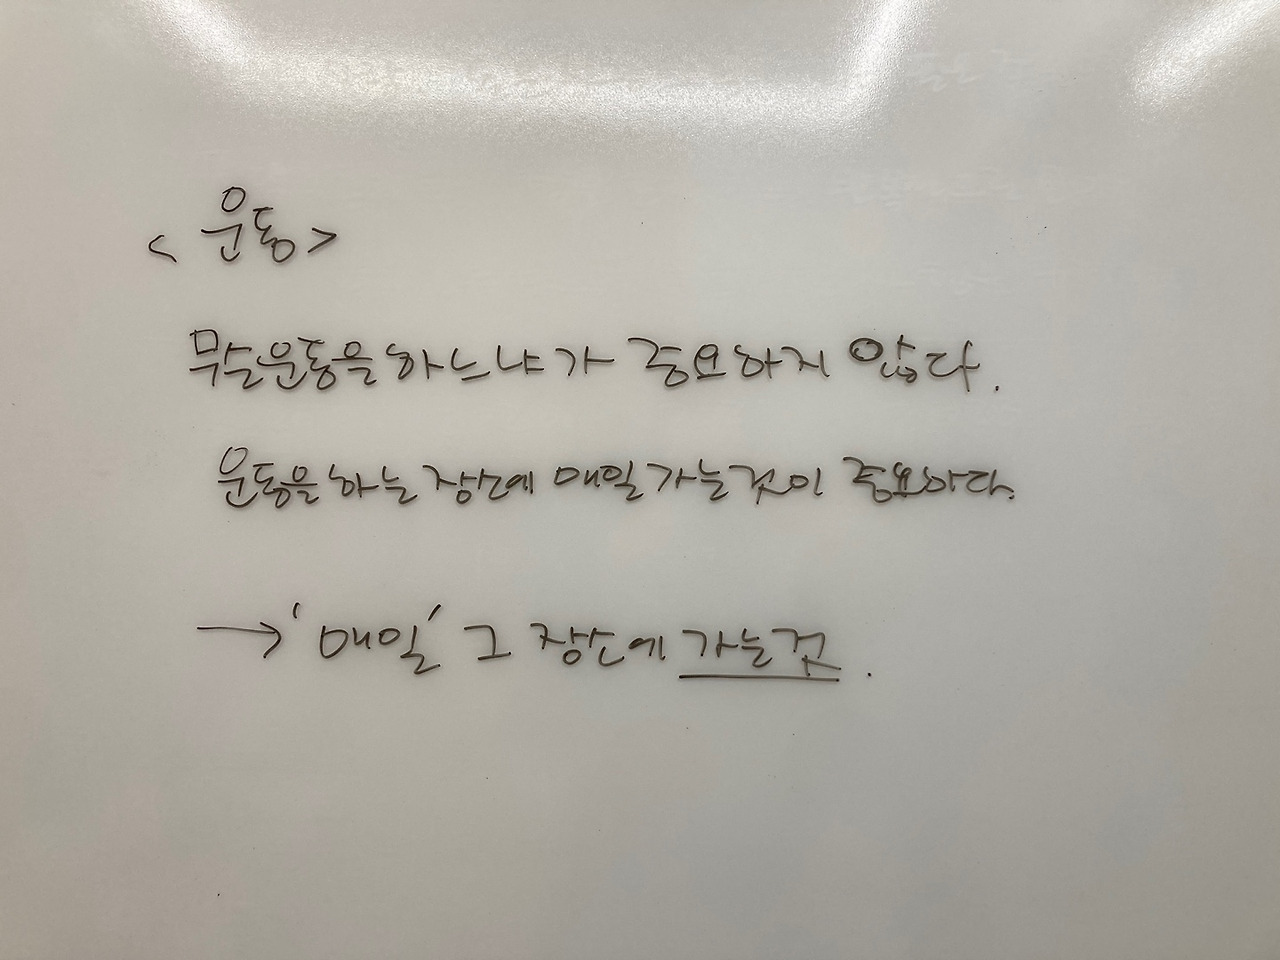 <운동>
무슨운동을 하느냐가 중요하지 않다.
운동을 하는 장소에 매일 가는것이 중요하다.
→ '매일' 그 장소에 가는것.